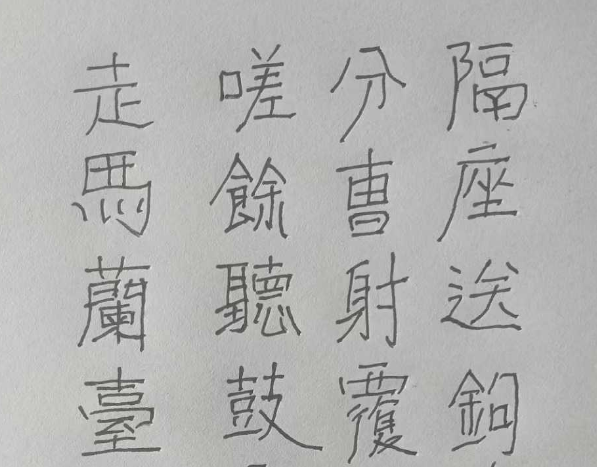 隔座送鉤
分曹射覆
嗟餘聽鼓
走馬蘭臺